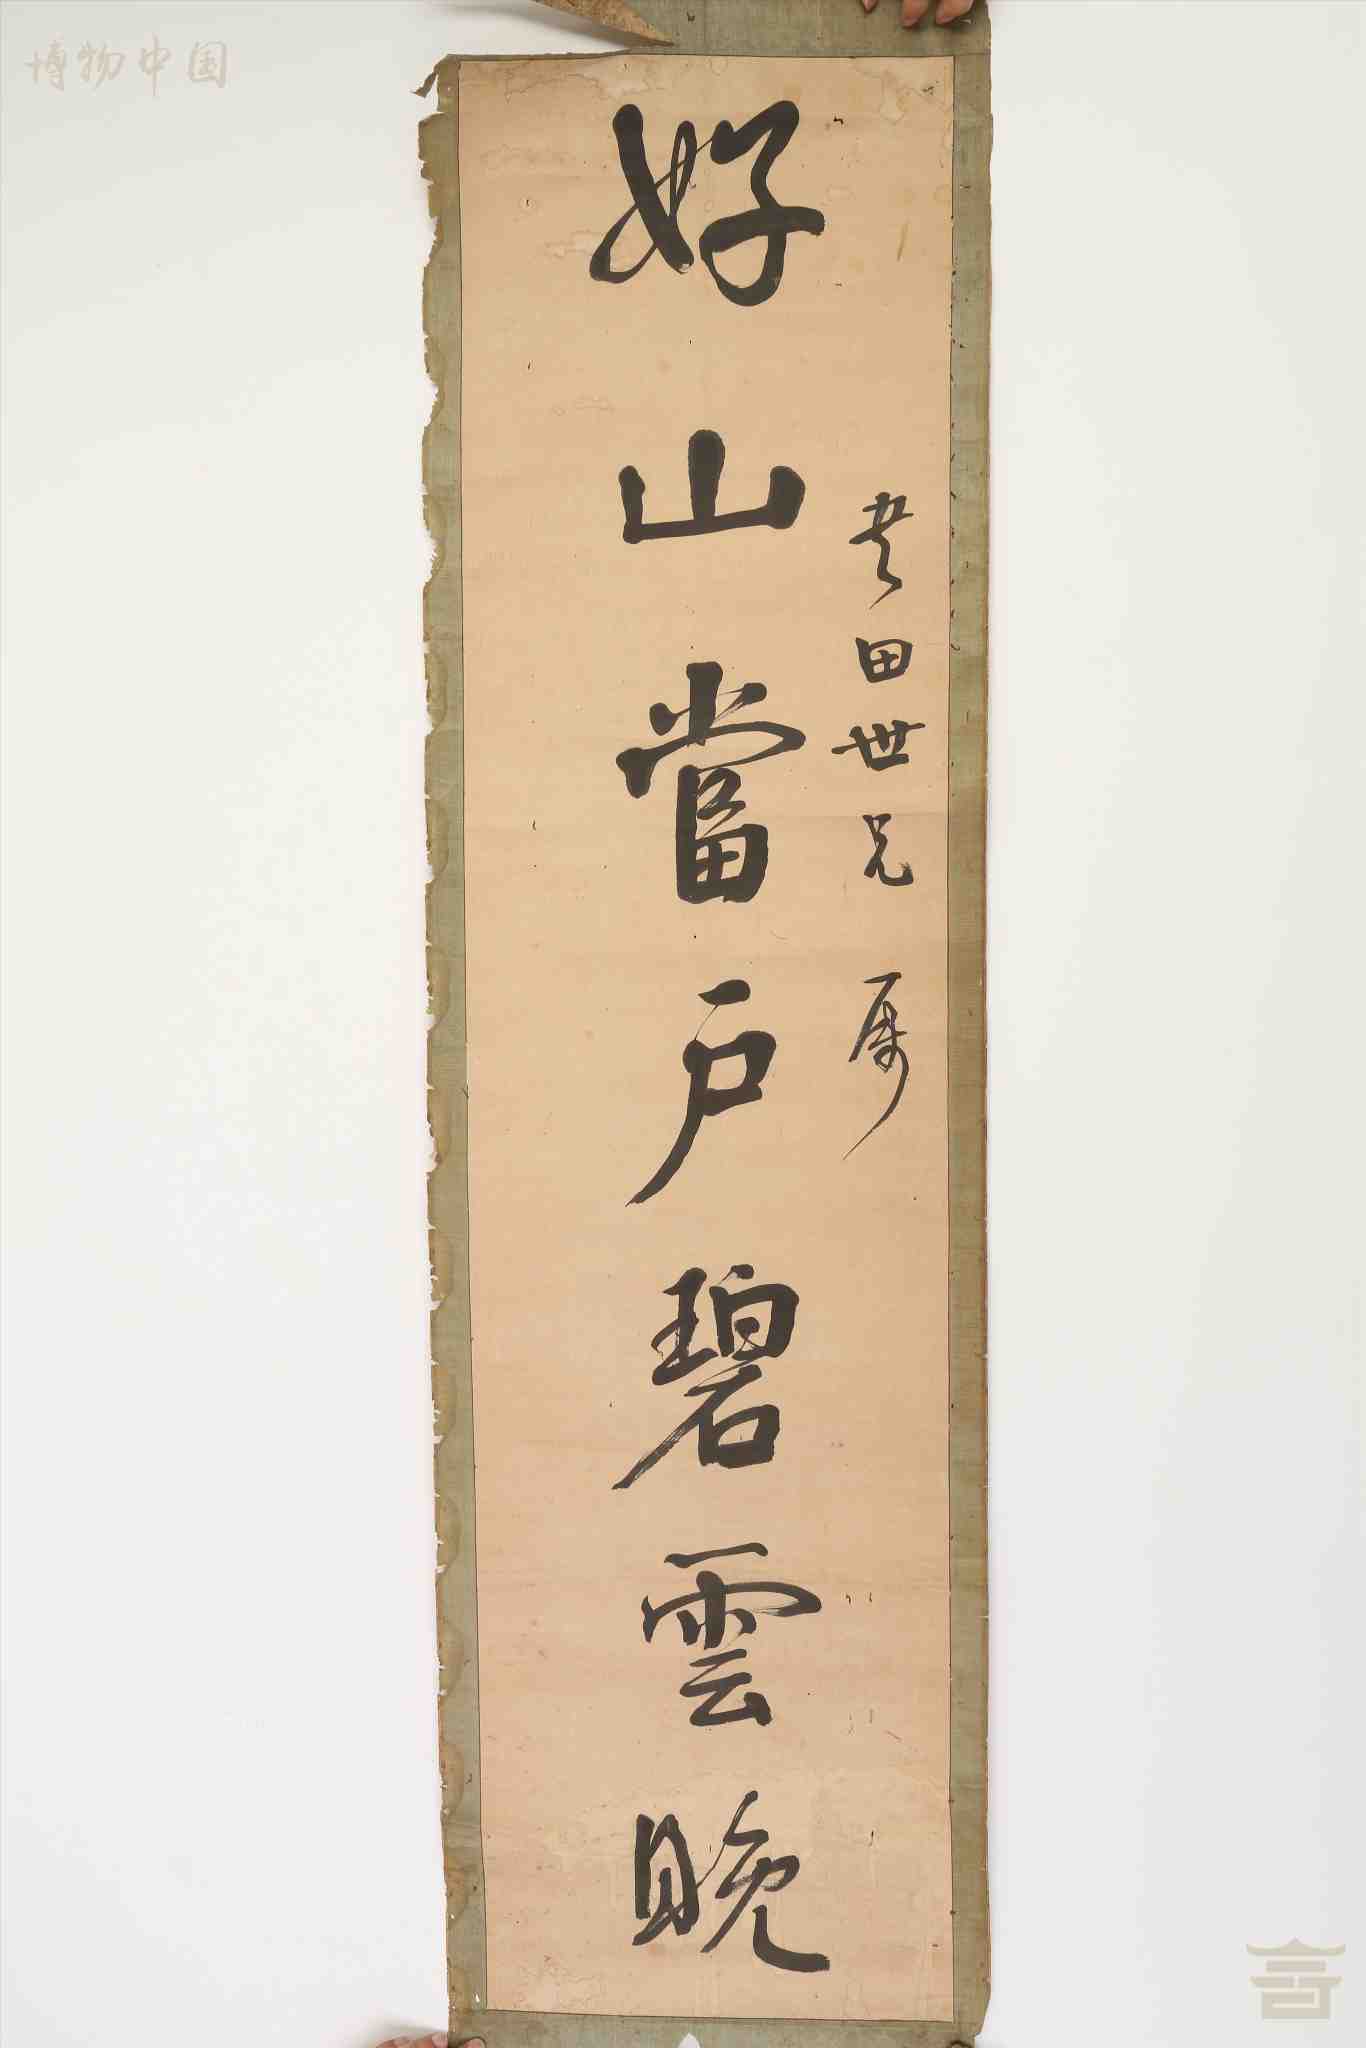 博物中国
田世兄属
好山當户碧雲晚